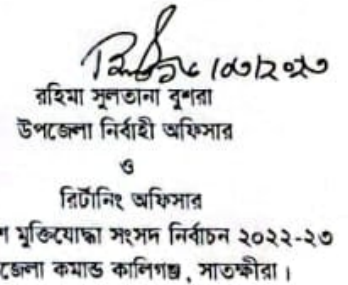 রহিমা সুলতানা বুশরা
উপজেলা নির্বাহী অফিসার
ও
রিটার্নিং অফিসার
মুক্তিযোদ্ধা সংসদ নির্বাচন ২০২২-২৩
কমান্ড কালিগঞ্জ, সাতক্ষীরা।